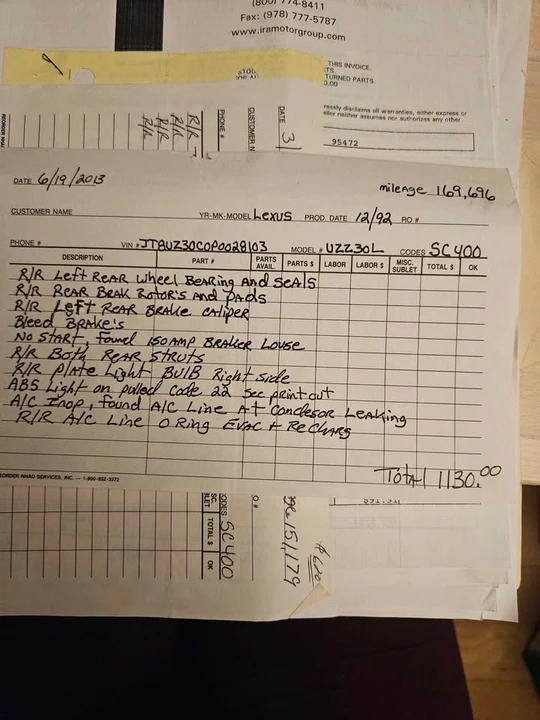 (800) 774-8411
Fax: (978) 777-5787
www.iramotorgroup.com
THIS INVOICE.
TURNED PARTS.
95472
DATE 3
CUSTOMER N
PHONE #
R/R
R/R
R/R
R/R
DATE 6/19/2013
mileage 169,696
CUSTOMER NAME YR-MK-MODEL Lexus PROD. DATE 12/92 RO #
PHONE # VIN # JT8UZ30C0P0028103 MODEL # UZZ30L CODES SC400
DESCRIPTION PART # PARTS AVAIL. PARTS $ LABOR LABOR $ MISC. SUBLET TOTAL $ OK
R/R Left Rear Wheel Bearing And Seals
R/R Rear Brak Rotor's and Pads
R/R Left Rear Brake Caliper
Bleed Brake's
No Start, found 150 Amp Braker Louse
R/R Both Rear Struts
R/R Plate Light Bulb Right side
ABS Light on pulled Code 22 See print out
A/C Inop, found A/C Line At Condesor Leaking
R/R A/C Line O Ring Evac + ReCharg
Total 1130.00
REORDER NHAD SERVICES, INC. — 1-800-852-3372
CODES SC400
TOTAL $ OK
151,179